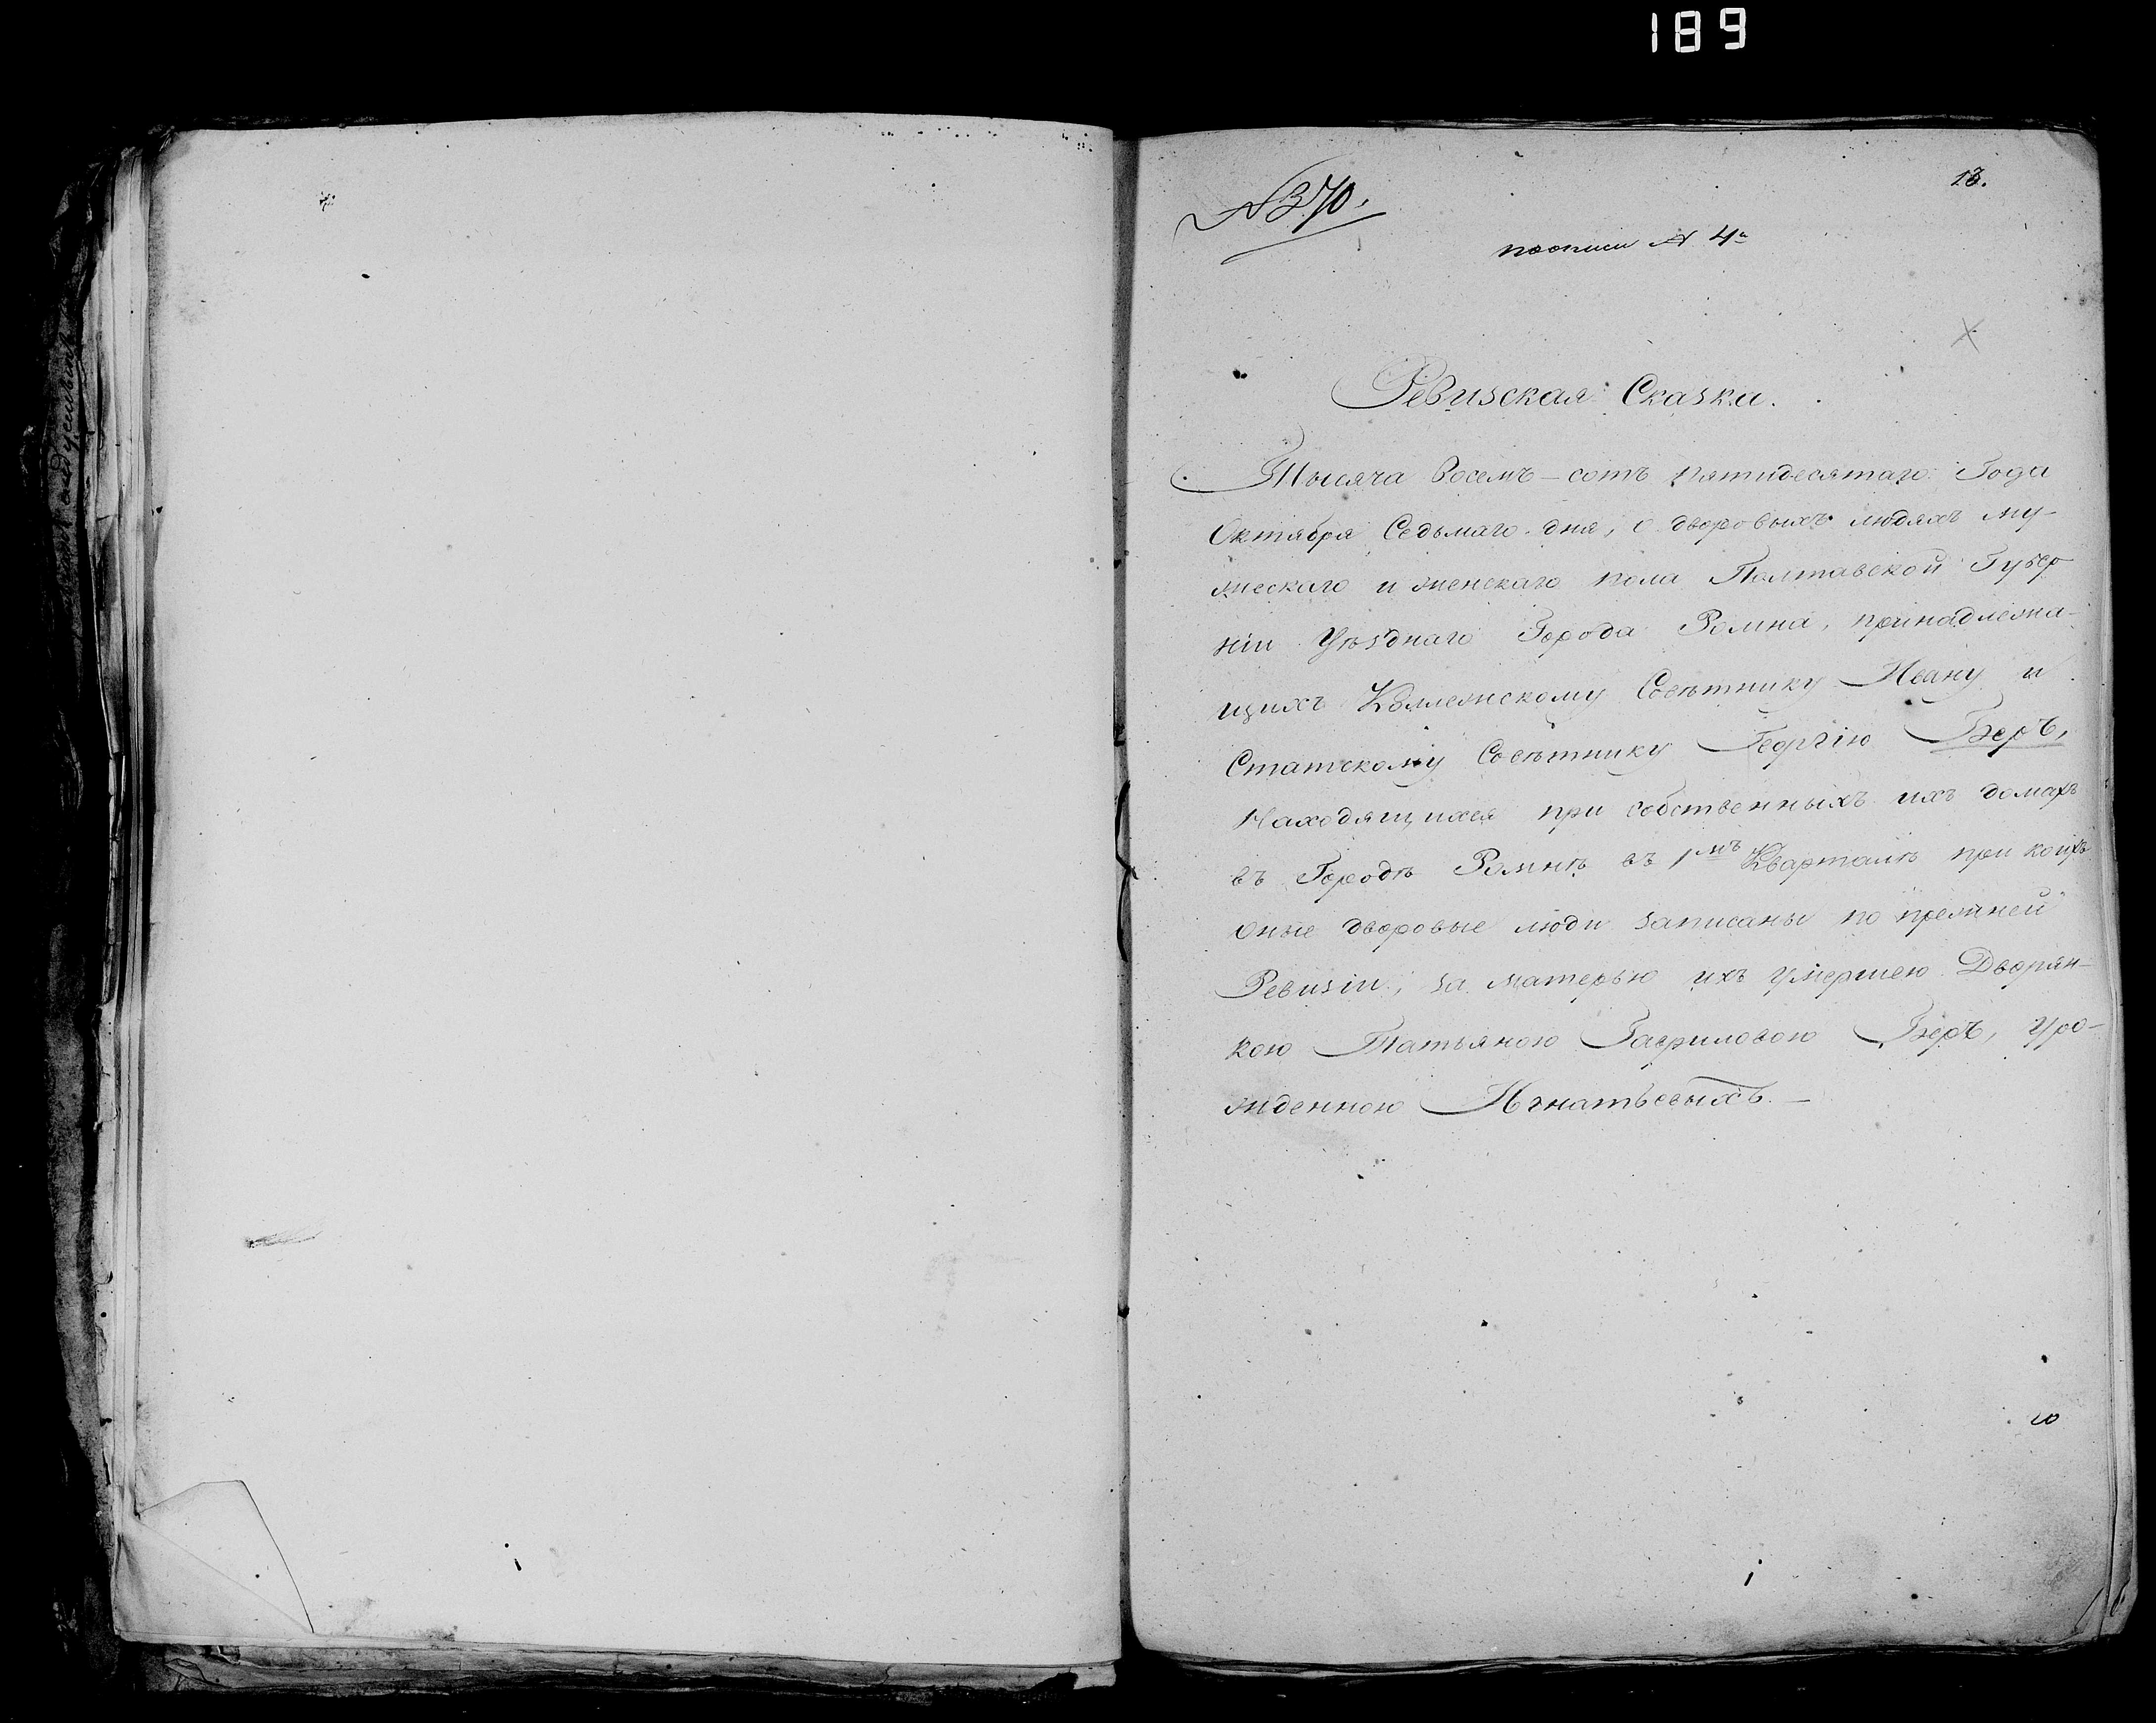 189
13.
№ 370.
по описи № 4й
Ревизская Сказка.
Тысяча Восемъ-сотъ пятидесятаго Года
Октября Седьмаго дня, о дворовыхъ людяхъ му-
жескаго и женскаго пола Полтавской Губер
ніи Уѣзднаго Города Ромна, принадлежа-
щихъ Коллежскому Совѣтнику Ивану и
Статскому Совѣтнику Георгію Бееръ,
Находящихся при собственныхъ ихъ домахъ
въ Городѣ Ромнѣ въ 1мъ Кварталѣ при коихъ
оные дворовые люди записаны по прежней
Ревизіи, за матерью ихъ умершею Дворян-
кою Татьяною Гавриловою Бееръ, уро-
жденною Игнатьевыхъ. —